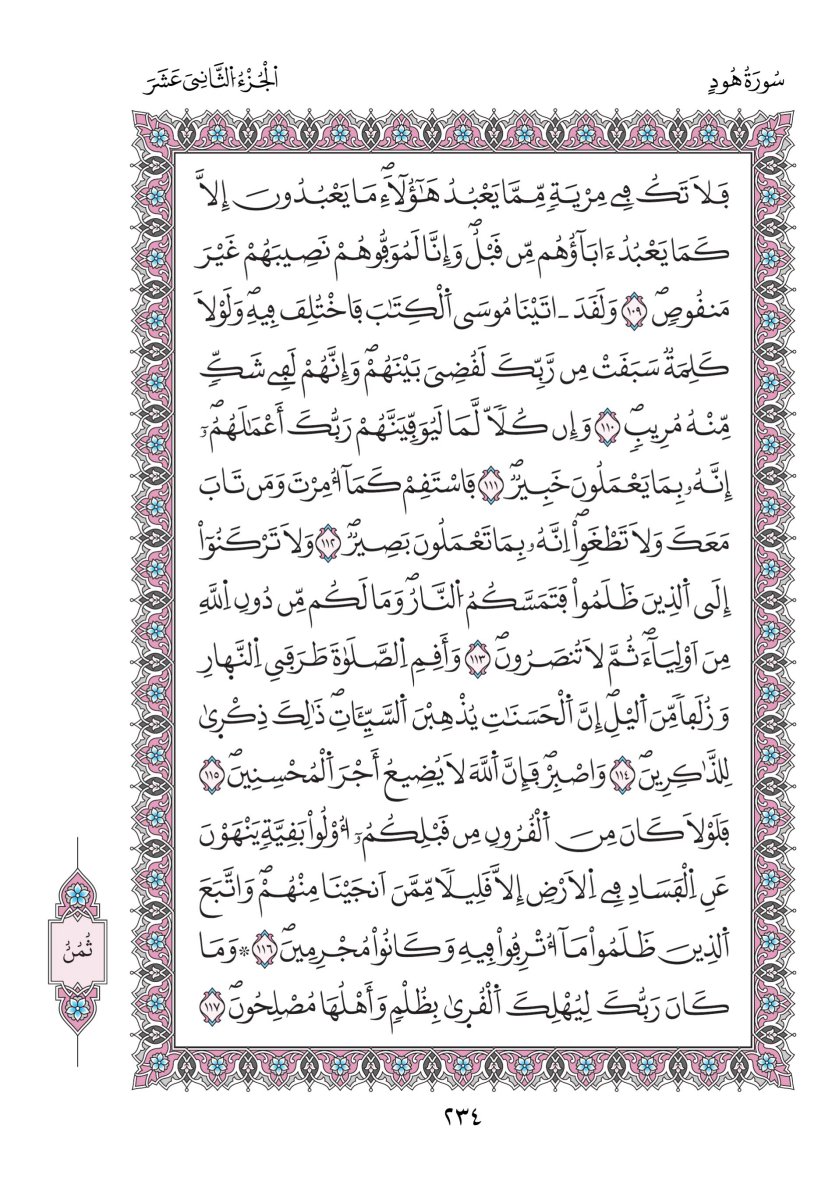 سُورَةُ هُودٍ
اَ۬لْجُزْءُ اُ۬لثَّانِيَ عَشَرَ
فَلَا تَكُ فِے مِرْيَةٖ مِّمَّا يَعْبُدُ هَٰٓؤُلَآءِۖ مَا يَعْبُدُونَ إِلَّا
كَمَا يَعْبُدُ ءَابَآؤُهُم مِّن قَبْلُۖ وَإِنَّا لَمُوَفُّوهُمْ نَصِيبَهُمْ غَيْرَ
مَنقُوصٖۖ ١٠٩ وَلَقَدَ اٰتَيْنَا مُوسَي اَ۬لْكِتَٰبَ فَاخْتُلِفَ فِيهِۖ وَلَوْلَا
كَلِمَةٞ سَبَقَتْ مِن رَّبِّكَ لَقُضِيَ بَيْنَهُمْۖ وَإِنَّهُمْ لَفِے شَكّٖ
مِّنْهُ مُرِيبٖۖ ١١٠ وَإِن كُلّاٗ لَّمَا لَيُوَفِّيَنَّهُمْ رَبُّكَ أَعْمَٰلَهُمُۥٓۖ
إِنَّهُۥ بِمَا يَعْمَلُونَ خَبِيرٞۖ ١١١ فَاسْتَقِمْ كَمَآ أُمِرْتَ وَمَن تَابَ
مَعَكَ وَلَا تَطْغَوِاْۖ اِنَّهُۥ بِمَا تَعْمَلُونَ بَصِيرٞۖ ١١٢ وَلَا تَرْكَنُوٓاْ
إِلَي اَ۬لذِينَ ظَلَمُواْ فَتَمَسَّكُمُ اُ۬لنَّارُۖ وَمَا لَكُم مِّن دُونِ اِ۬للَّهِ
مِنَ اَوْلِيَآءَۖ ثُمَّ لَا تُنصَرُونَۖ ١١٣ وَأَقِمِ اِ۬لصَّلَوٰةَ طَرَفَيِ اِ۬لنَّهِارِ
وَزُلَفاٗ مِّنَ اَ۬ليْلِۖ إِنَّ اَ۬لْحَسَنَٰتِ يُذْهِبْنَ اَ۬لسَّيِّـَٔاتِۖ ذَٰلِكَ ذِكْر۪يٰ
لِلذَّٰكِرِينَۖ ١١٤ وَاصْبِرْۖ فَإِنَّ اَ۬للَّهَ لَا يُضِيعُ أَجْرَ اَ۬لْمُحْسِنِينَۖ ١١٥
فَلَوْلَا كَانَ مِنَ اَ۬لْقُرُونِ مِن قَبْلِكُمُۥٓ أُوْلُواْ بَقِيَّةٖ يَنْهَوْنَ
عَنِ اِ۬لْفَسَادِ فِے اِ۬لَارْضِ إِلَّا قَلِيلاٗ مِّمَّنَ اَنجَيْنَا مِنْهُمْۖ وَاتَّبَعَ
اَ۬لذِينَ ظَلَمُواْ مَآ أُتْرِفُواْ فِيهِ وَكَانُواْ مُجْرِمِينَۖ ١١٦ ۞ وَمَا
كَانَ رَبُّكَ لِيُهْلِكَ اَ۬لْقُر۪يٰ بِظُلْمٖ وَأَهْلُهَا مُصْلِحُونَۖ ١١٧
ثُمُنُ
٢٣٤